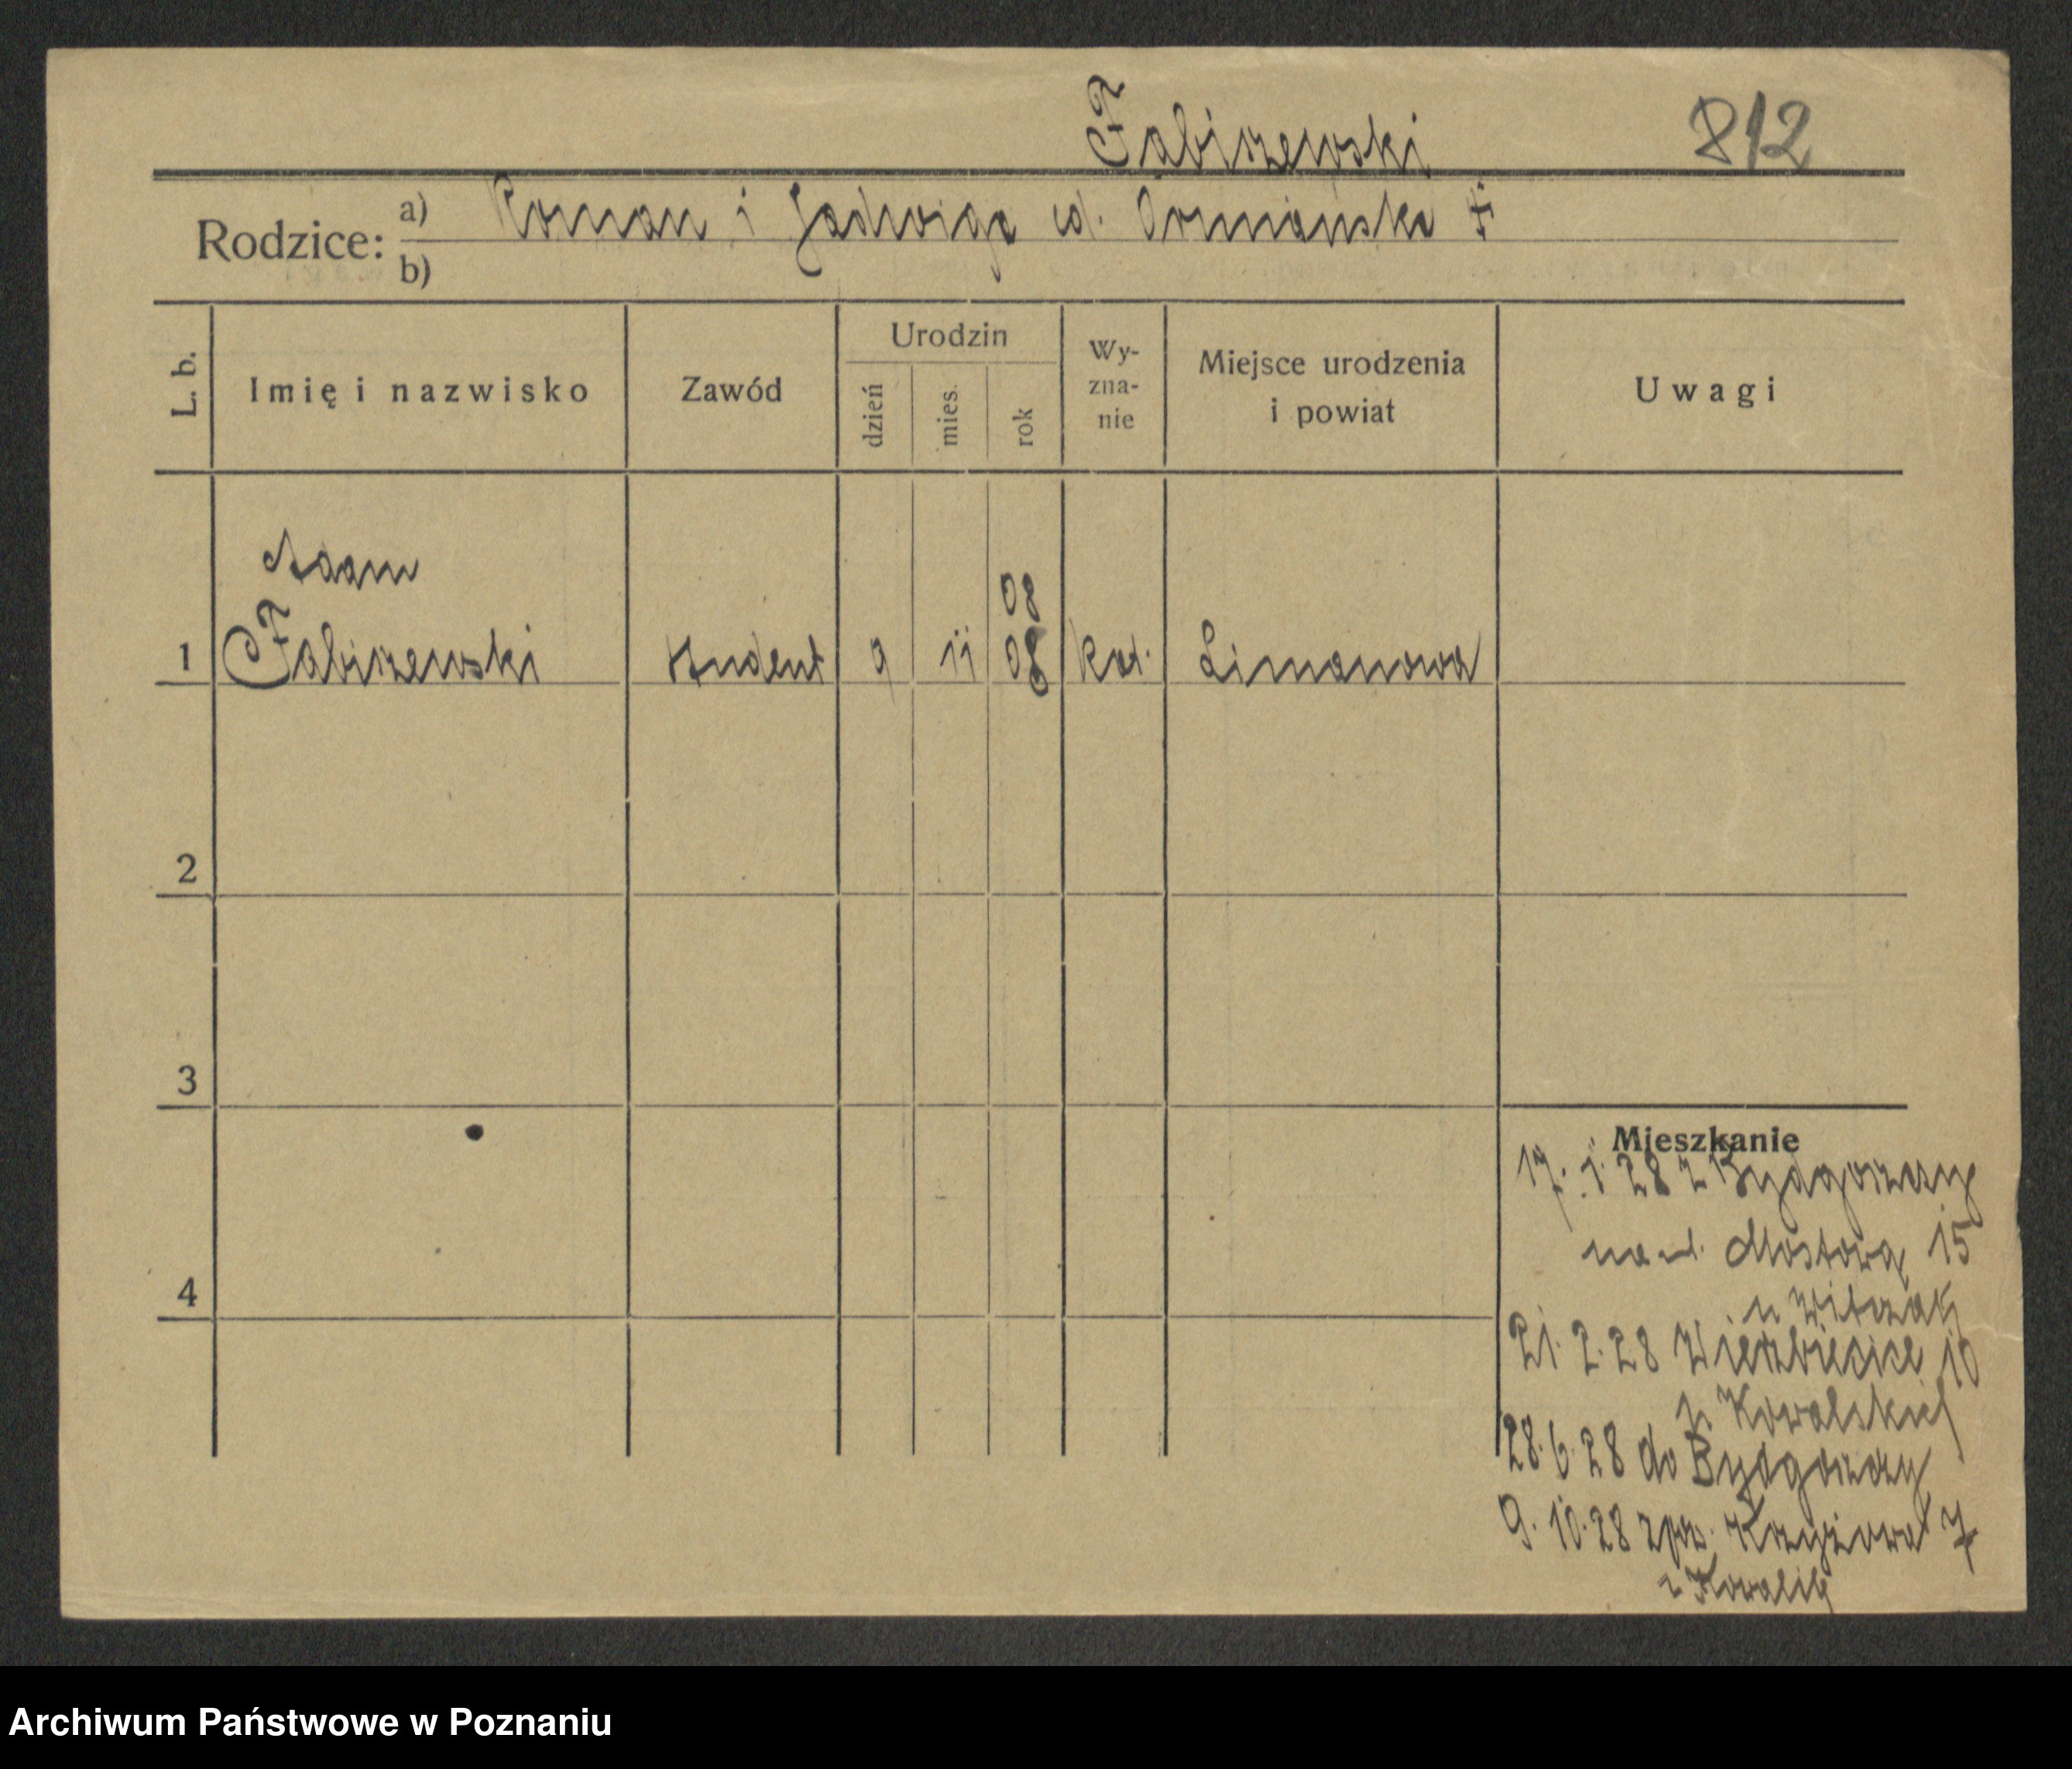 Fabiszewski 812
Rodzice: a) Roman i Jadwiga id. Ormańska
b)
L. b. Imię i nazwisko Zawód Urodzin dzień mies. rok Wy-zna-nie Miejsce urodzenia i powiat Uwagi
Adam 08
1 Fabiszewski student 9 11 08 kat. Limanowa
2
3
Mieszkanie
17. 1. 28 z Bydgoszczy
na ul. Mostową 15
u Witczak
4
21. 2. 28 Wierzbięcice 10
u Kowalskiej
28. 6. 28 do Bydgoszczy
9. 10. 28 zpr. Krzyżowa 7
Archiwum Państwowe w Poznaniu